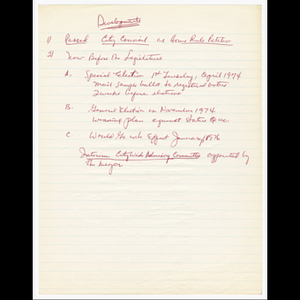 Developments
1) Passed City Council as Home Rule Petition
2) Now Before The Legislature
A. Special Election 1st Tuesday, April 1974
Mail sample ballot to registered voters
2 weeks before election
B. General Election in November 1974
winning plan against Status Quo.
C Would Go into Effect January 1976
Interim CityWide Advisory Committee appointed by
the Mayor